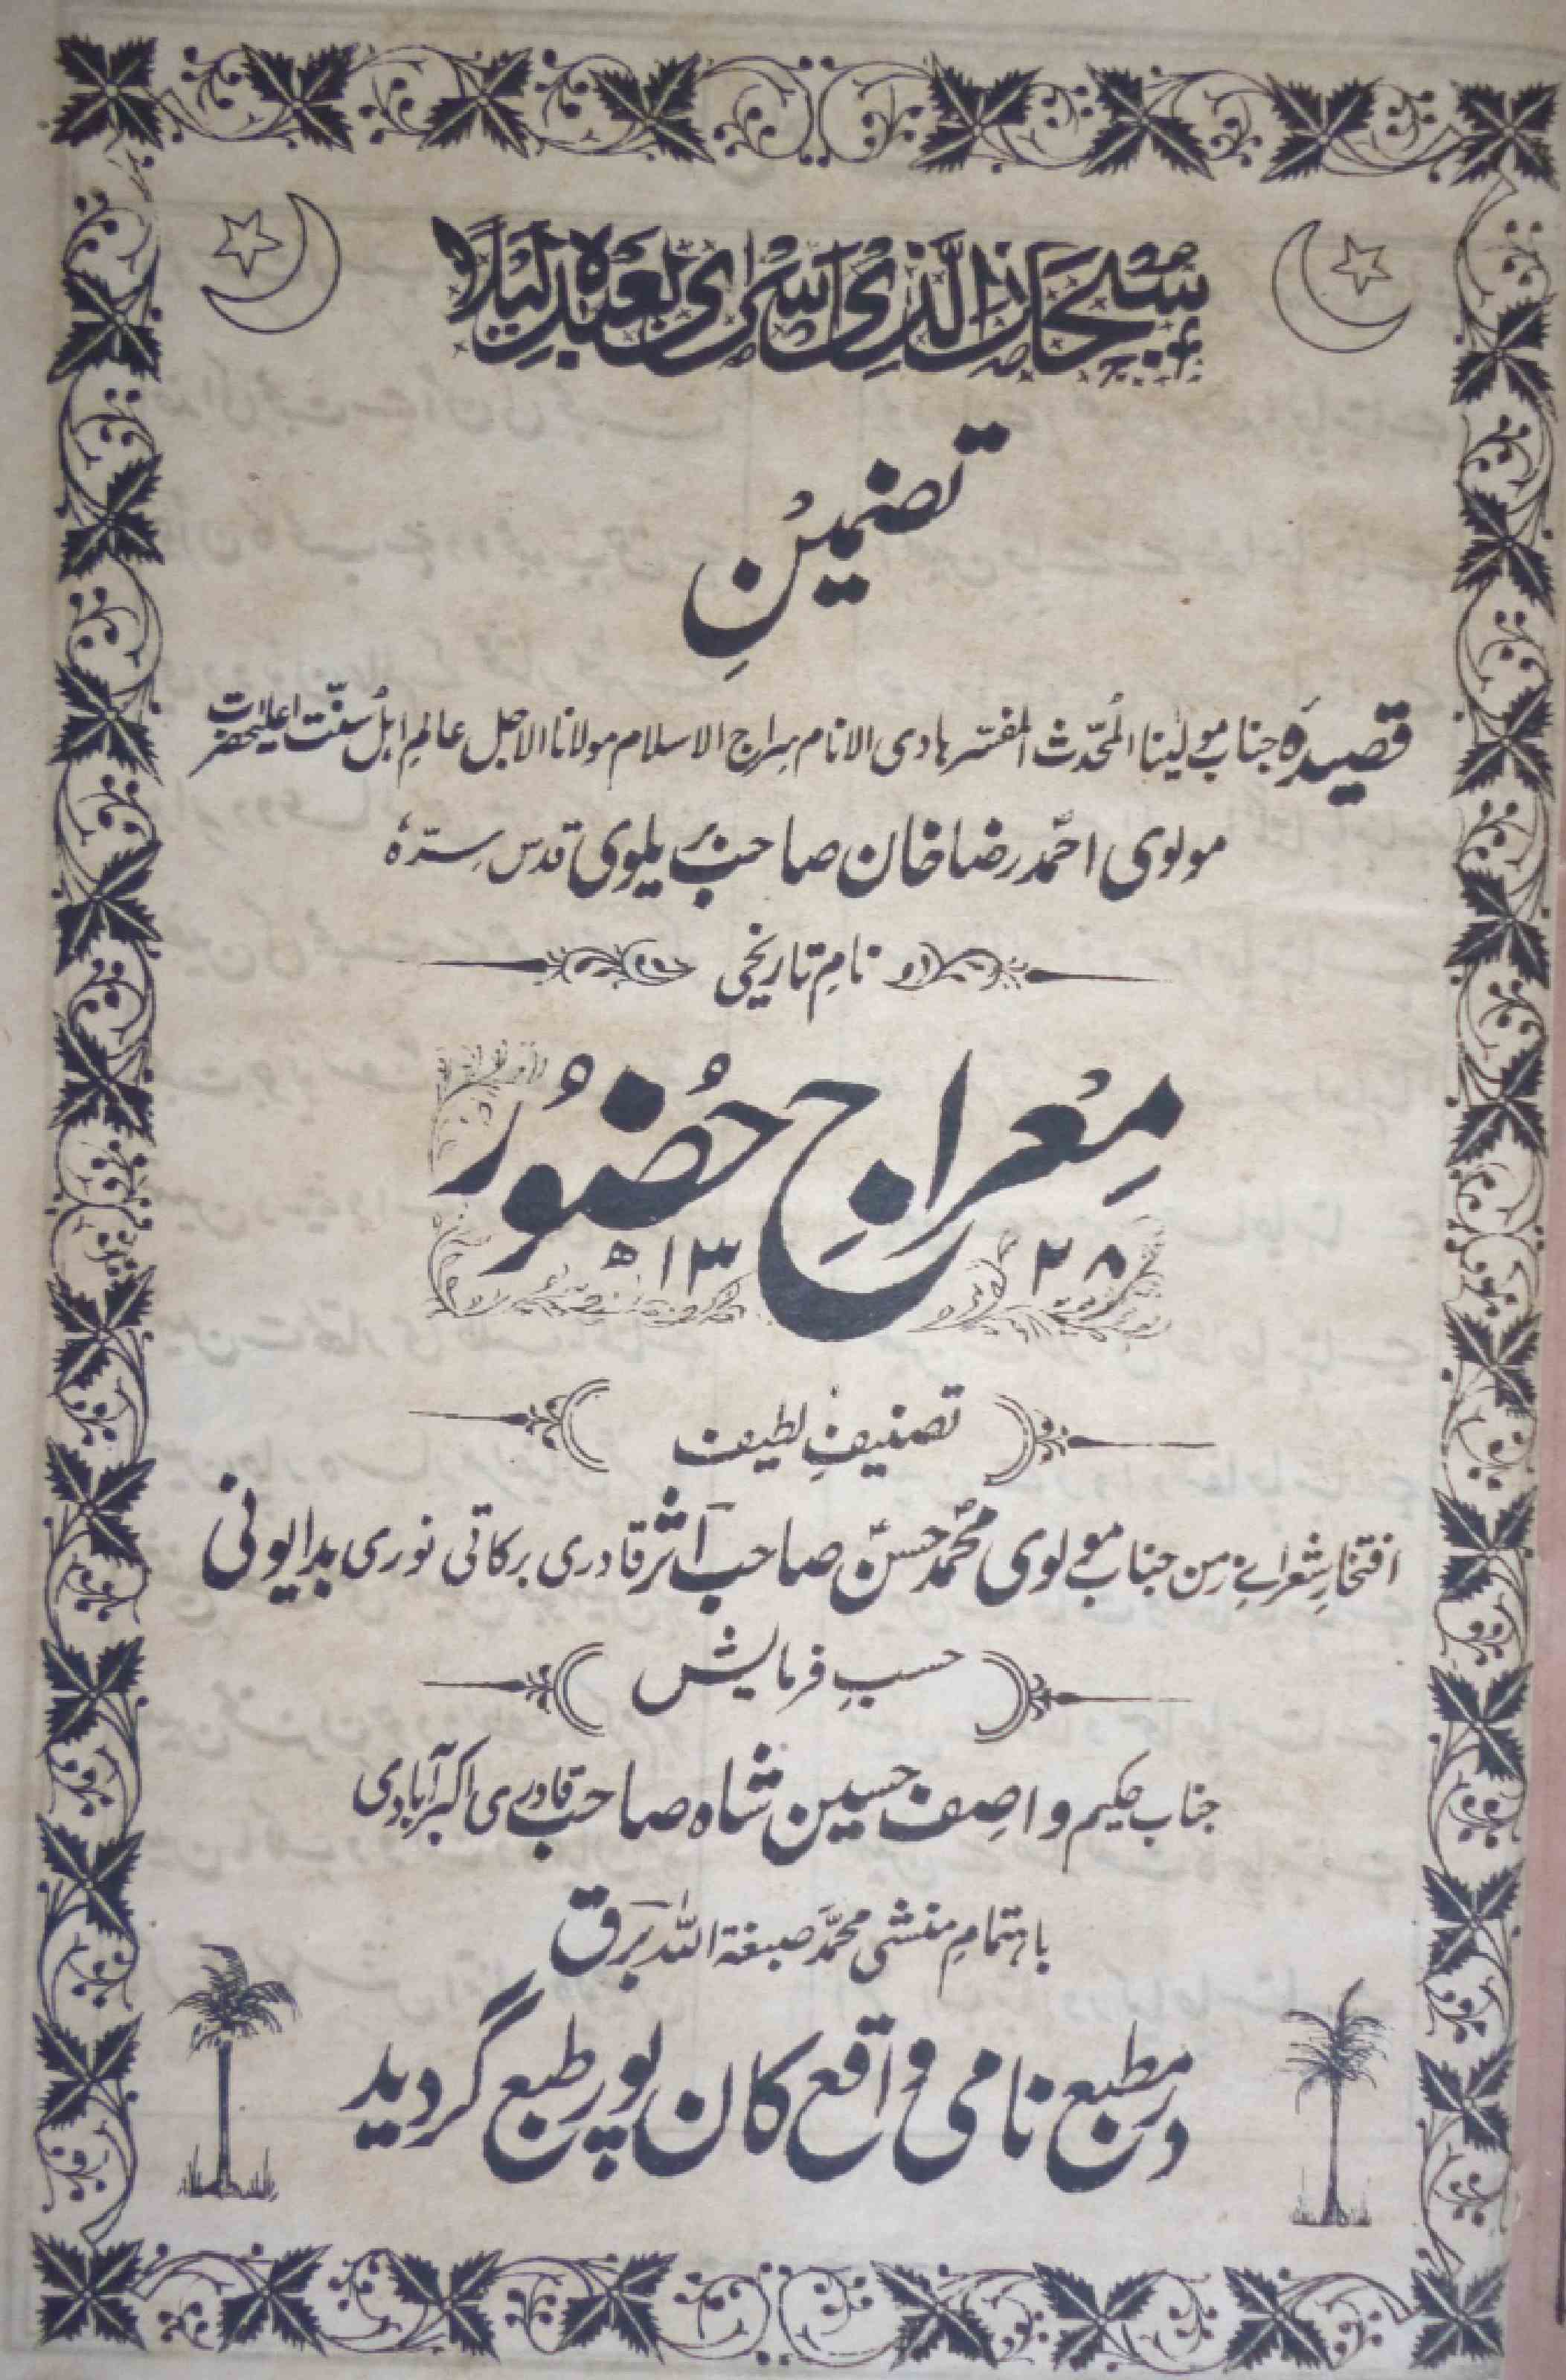 سُبْحَانَ الَّذِیْ اَسْرٰی بِعَبْدِہٖ لَیْلًا
تضمینِ
قصیدہَ جناب مولٰینا المُحدّث المفسّر ہادی الانام سراج الاسلام مولانا الاجل عالمِ اہلُ سُنّت اعلیٰحضرت
مولوی احمد رضا خان صاحب بریلوی قدس سرّہٗ
نامِ تاریخی
مِعْراجِ حُضُوْر
۱۳ ۲۸ ھ
تصنیفِ لطیف
افتخارِ شعراے زمن جناب مولوی محمّد حسن صاحب آثر قادری برکاتی نوری بدایونی
حسبِ فرمایش
جناب حکیم واصف حسین شاہ صاحب قادری اکبرآبادی
باہتمامِ منشی محمّد صبغۃ اللہ برَق
در مطبع نامی واقع کان پور طبع گردید